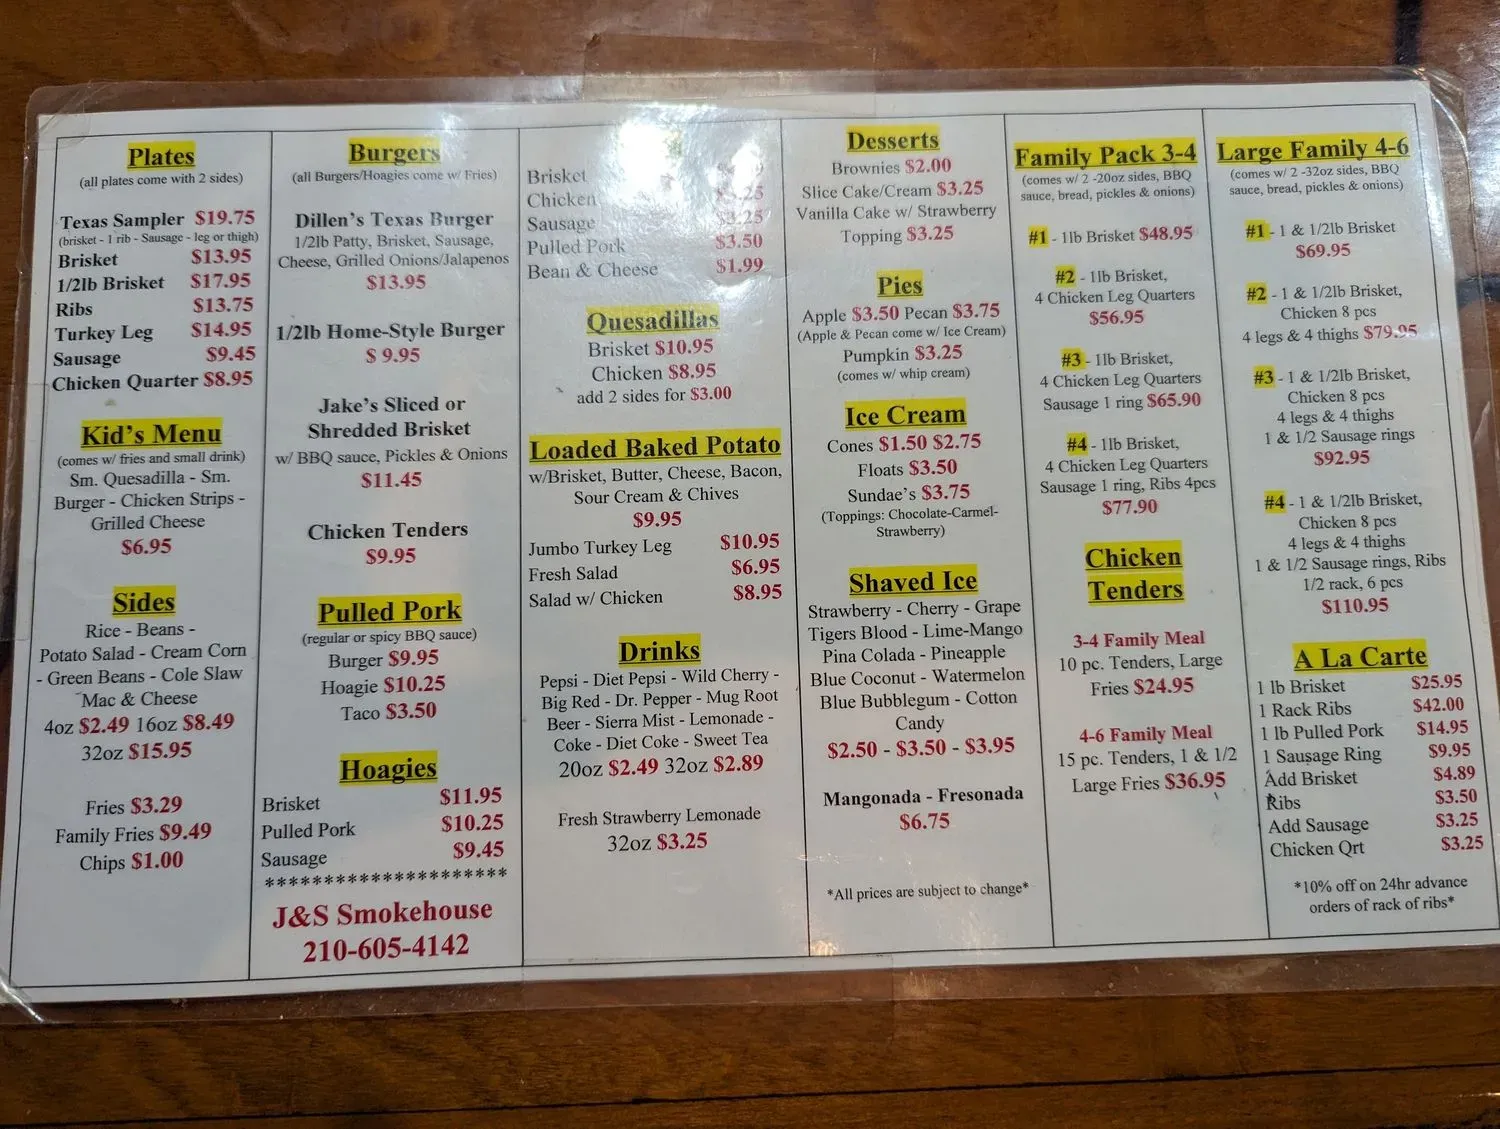 Plates
(all plates come with 2 sides)
Texas Sampler $19.75
(brisket - 1 rib - Sausage - leg or thigh)
Brisket $13.95
1/2lb Brisket $17.95
Ribs $13.75
Turkey Leg $14.95
Sausage $9.45
Chicken Quarter $8.95
Kid's Menu
(comes w/ fries and small drink)
Sm. Quesadilla - Sm.
Burger - Chicken Strips -
Grilled Cheese
$6.95
Sides
Rice - Beans -
Potato Salad - Cream Corn
- Green Beans - Cole Slaw
Mac & Cheese
4oz $2.49 16oz $8.49
32oz $15.95
Fries $3.29
Family Fries $9.49
Chips $1.00
Burgers
(all Burgers/Hoagies come w/ Fries)
Dillen's Texas Burger
1/2lb Patty, Brisket, Sausage,
Cheese, Grilled Onions/Jalapenos
$13.95
1/2lb Home-Style Burger
$ 9.95
Jake's Sliced or
Shredded Brisket
w/ BBQ sauce, Pickles & Onions
$11.45
Chicken Tenders
$9.95
Pulled Pork
(regular or spicy BBQ sauce)
Burger $9.95
Hoagie $10.25
Taco $3.50
Hoagies
Brisket $11.95
Pulled Pork $10.25
Sausage $9.45
*********************
J&S Smokehouse
210-605-4142
Brisket
Chicken
Sausage $3.25
Pulled Pork $3.50
Bean & Cheese $1.99
Quesadillas
Brisket $10.95
Chicken $8.95
add 2 sides for $3.00
Loaded Baked Potato
w/Brisket, Butter, Cheese, Bacon,
Sour Cream & Chives
$9.95
Jumbo Turkey Leg $10.95
Fresh Salad $6.95
Salad w/ Chicken $8.95
Drinks
Pepsi - Diet Pepsi - Wild Cherry -
Big Red - Dr. Pepper - Mug Root
Beer - Sierra Mist - Lemonade -
Coke - Diet Coke - Sweet Tea
20oz $2.49 32oz $2.89
Fresh Strawberry Lemonade
32oz $3.25
Desserts
Brownies $2.00
Slice Cake/Cream $3.25
Vanilla Cake w/ Strawberry
Topping $3.25
Pies
Apple $3.50 Pecan $3.75
(Apple & Pecan come w/ Ice Cream)
Pumpkin $3.25
(comes w/ whip cream)
Ice Cream
Cones $1.50 $2.75
Floats $3.50
Sundae's $3.75
(Toppings: Chocolate-Carmel-
Strawberry)
Shaved Ice
Strawberry - Cherry - Grape
Tigers Blood - Lime-Mango
Pina Colada - Pineapple
Blue Coconut - Watermelon
Blue Bubblegum - Cotton
Candy
$2.50 - $3.50 - $3.95
Mangonada - Fresonada
$6.75
*All prices are subject to change*
Family Pack 3-4
(comes w/ 2 -20oz sides, BBQ
sauce, bread, pickles & onions)
#1 - 1lb Brisket $48.95
#2 - 1lb Brisket,
4 Chicken Leg Quarters
$56.95
#3 - 1lb Brisket,
4 Chicken Leg Quarters
Sausage 1 ring $65.90
#4 - 1lb Brisket,
4 Chicken Leg Quarters
Sausage 1 ring, Ribs 4pcs
$77.90
Chicken
Tenders
3-4 Family Meal
10 pc. Tenders, Large
Fries $24.95
4-6 Family Meal
15 pc. Tenders, 1 & 1/2
Large Fries $36.95
Large Family 4-6
(comes w/ 2 -32oz sides, BBQ
sauce, bread, pickles & onions)
#1 - 1 & 1/2lb Brisket
$69.95
#2 - 1 & 1/2lb Brisket,
Chicken 8 pcs
4 legs & 4 thighs $79.95
#3 - 1 & 1/2lb Brisket,
Chicken 8 pcs
4 legs & 4 thighs
1 & 1/2 Sausage rings
$92.95
#4 - 1 & 1/2lb Brisket,
Chicken 8 pcs
4 legs & 4 thighs
1 & 1/2 Sausage rings, Ribs
1/2 rack, 6 pcs
$110.95
A La Carte
1 lb Brisket $25.95
1 Rack Ribs $42.00
1 lb Pulled Pork $14.95
1 Sausage Ring $9.95
Add Brisket $4.89
Ribs $3.50
Add Sausage $3.25
Chicken Qrt $3.25
*10% off on 24hr advance
orders of rack of ribs*